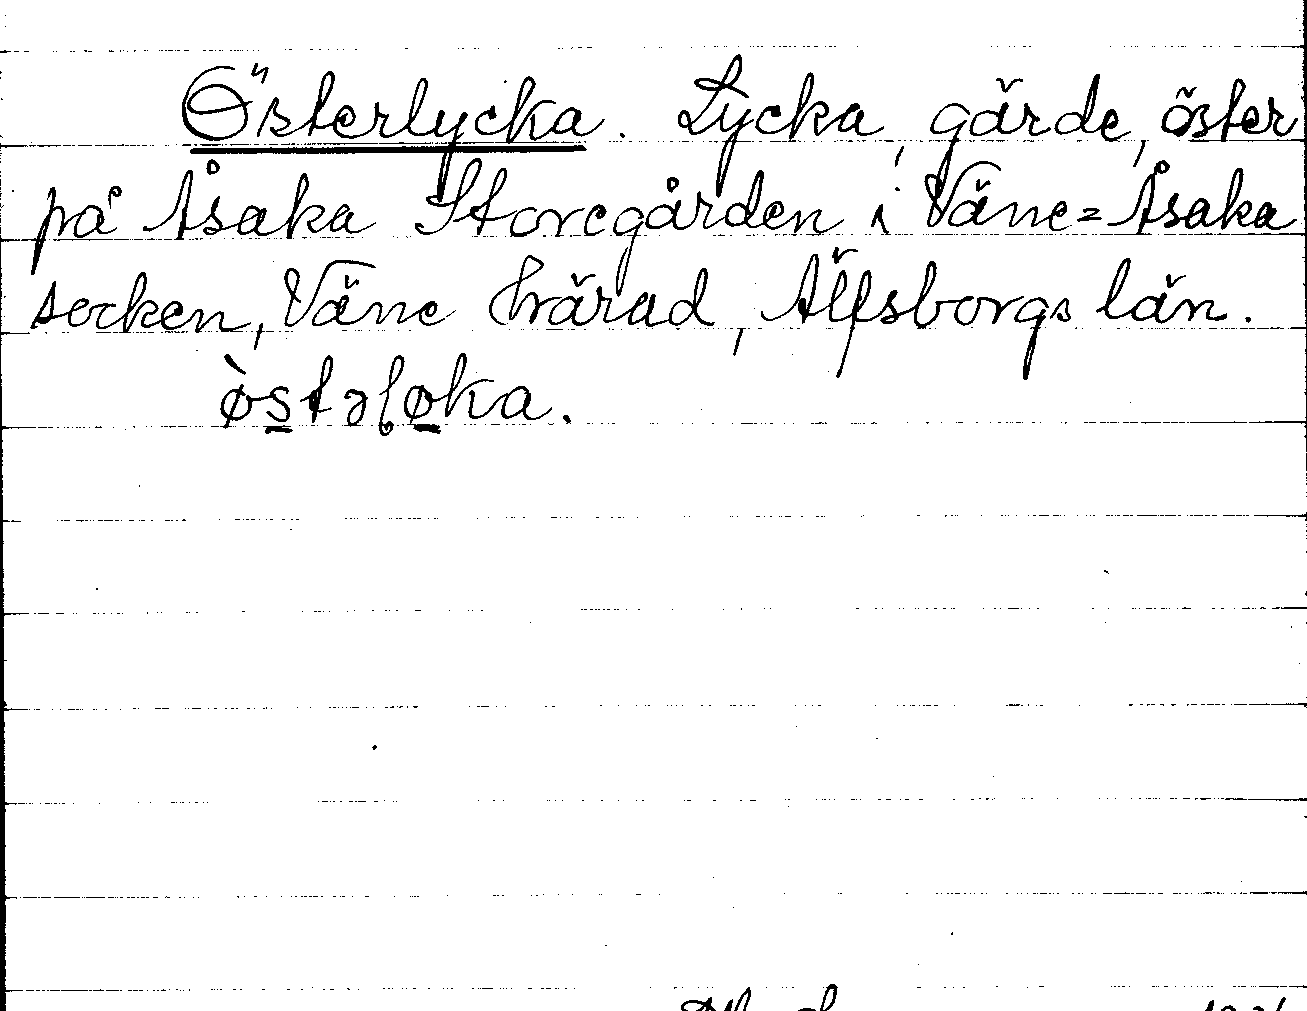 Österlycka. Lycka, gärde, öster
på Åsaka Storegården i Väne=Åsaka
socken, Väne härad, Älfsborgs län.
ø̀stəløka.